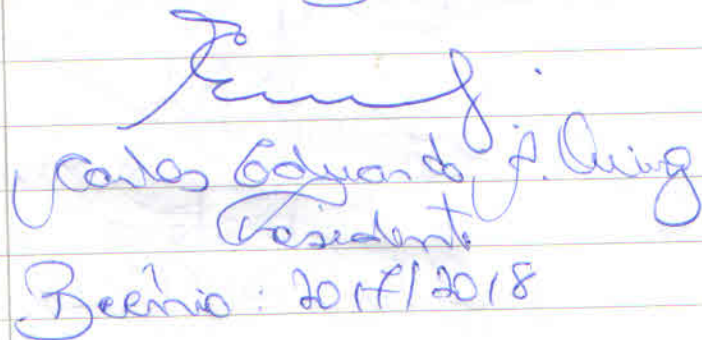 Carlos Eduardo J.
Presidente
Beênio: 2017/2018